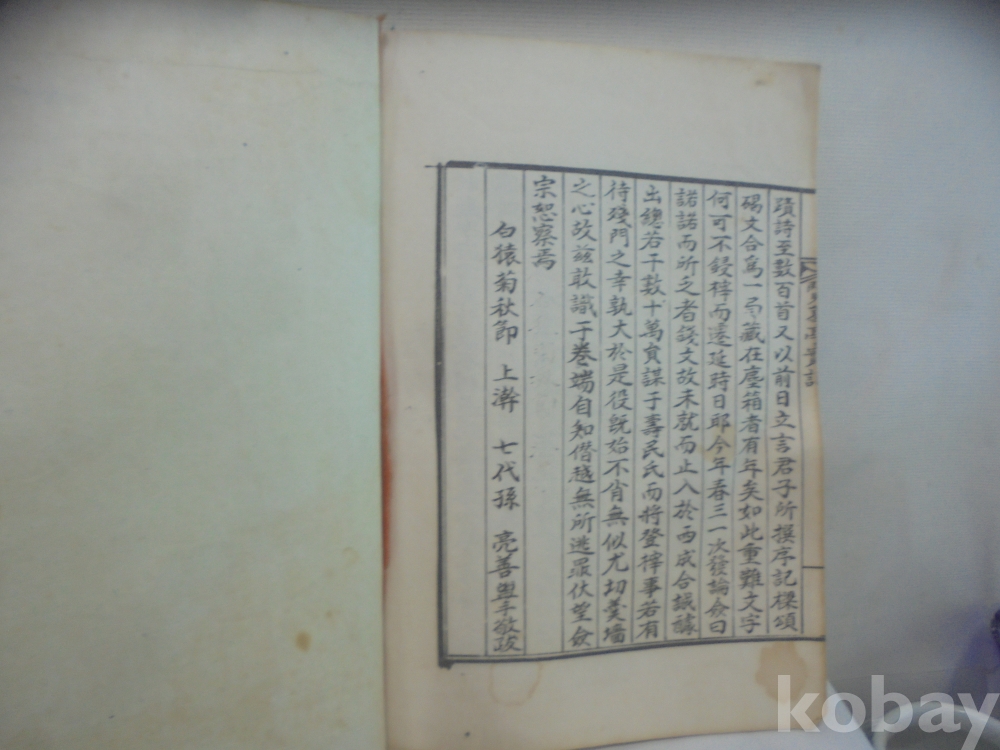 蹟詩至數百首又以前日立言君子所撰序記樑頌
碣文合爲一 藏在塵箱者有年矣如此重難文字
何可不鋟梓而遷延時日耶今年春三一次發論僉曰
諾諾而所乏者錢文故未就而止入於西成合議醵
出總若干數十萬 謀于壽民氏而將登梓事若有
待殘門之幸孰大於是役旣始不肖無似尤切羹墻
之心故玆敢識于卷端自知僭越無所逃罪伏望僉
宗恕察焉
白猿菊秋節 上澣 七代孫 亮善 盥手敬跋
kobay